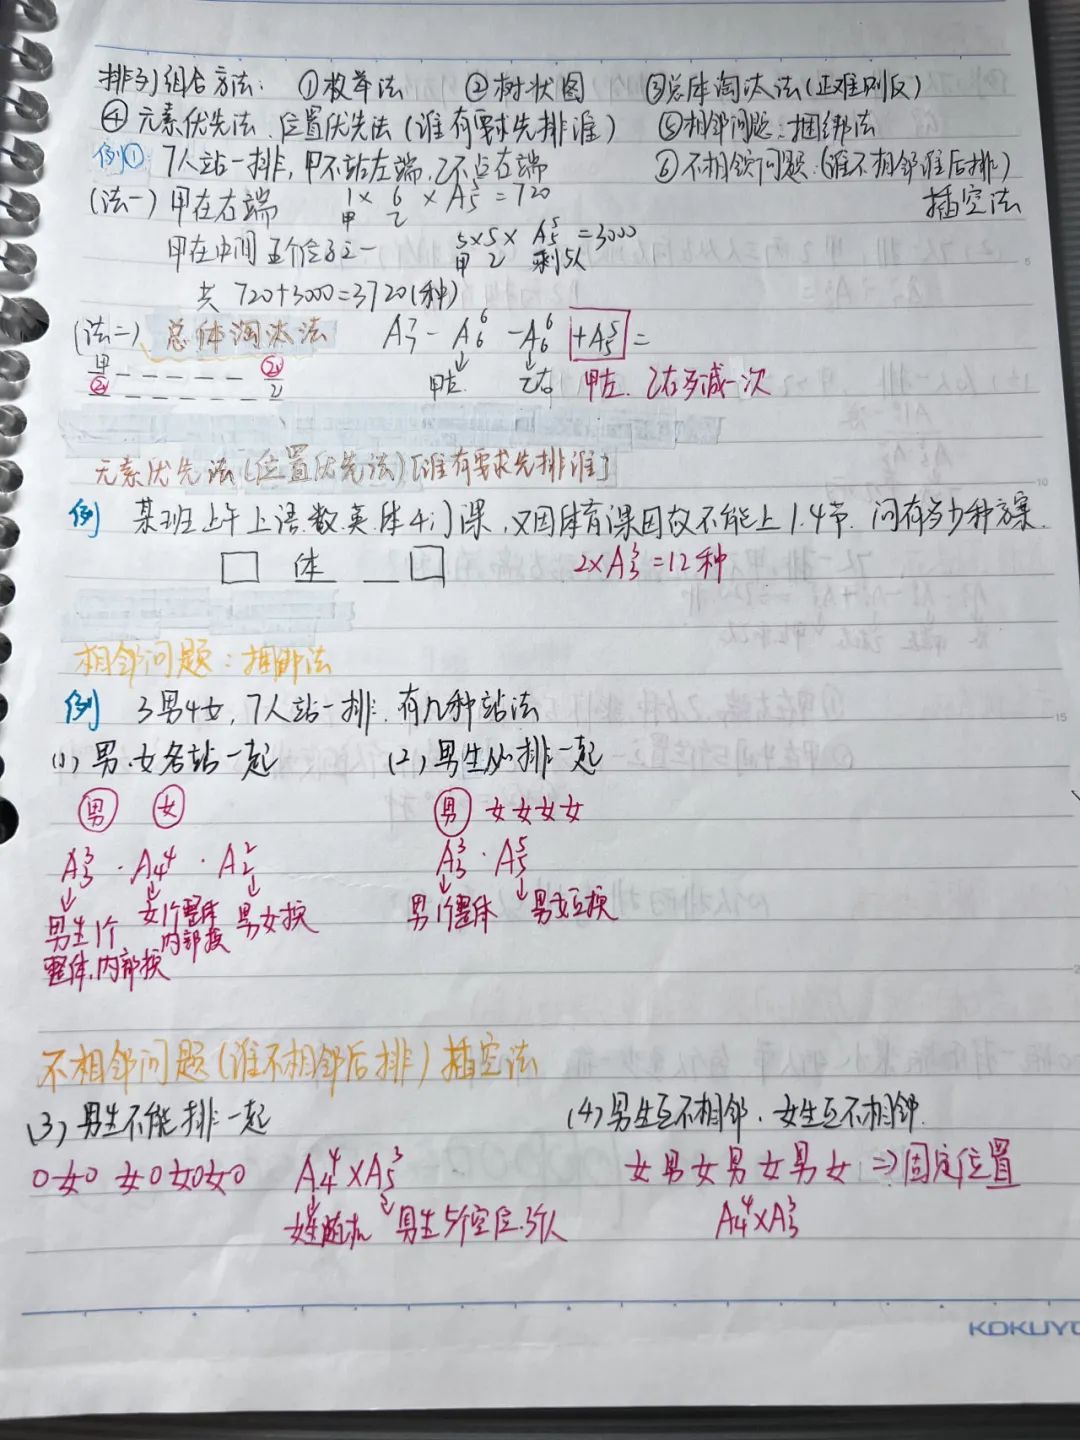 排列组合方法: ①枚举法 ②树状图 ③总体淘汰法(正难则反)
④元素优先法、位置优先法(谁有要求先排谁) ⑤相邻问题:捆绑法
例① 7人站一排,甲不站左端,乙不占右端 ⑥不相邻问题:(谁不相邻谁后排)
插空法
(法一) 甲在右端 1 × 6 × A₅⁵ = 720
甲 乙
甲在中间五个位子之一 5×5× A₅⁵ =3000
甲 乙 剩5人
共 720+3000=3720(种)
(法二) 总体淘汰法 A₇⁷ - A₆⁶ - A₆⁶ +A₅⁵ =
甲左. 乙右 甲左. 乙右多减一次
元素优先法(位置优先法)[谁有要求先排谁]
例 某班上午上语.数.英.体4门课,又因体育课因故不能上1.4节.问有多少种方案.
体 2×A₃³=12种
相邻问题:捆绑法
例 3男4女,7人站一排.有几种站法
(1) 男.女各站一起 (2) 男生必排一起
男 女 男 女女女女
A₃³ · A₄⁴ · A₂² A₃³ · A₅⁵
男生1个 女1个整体 男女换 男1个整体 男女互换
整体.内部换 内部换
不相邻问题(谁不相邻后排)插空法
(3) 男生不能排一起 (4) 男生互不相邻.女生互不相邻.
0女0 女0女0女0 A₄⁴×A₅³ 女男女男女男女 ⇒固定位置
男生5个空位.3个人 A₄⁴×A₃³
KOKUYO